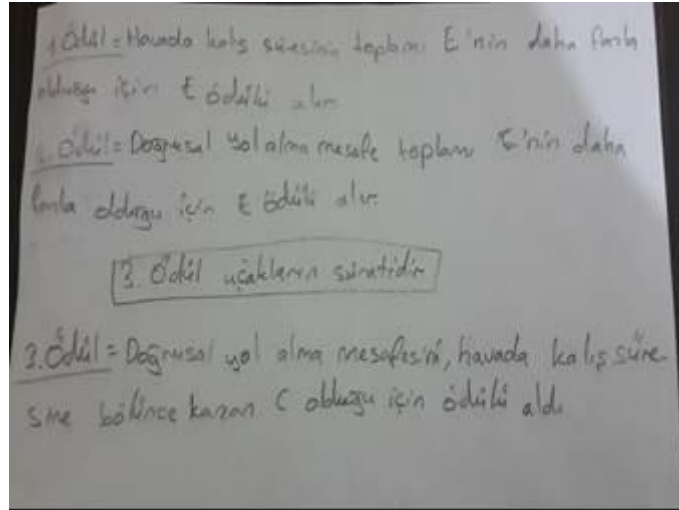 1. Ödül = Havada kalış süresinin toplamı E'nin daha fazla
olduğu için E ödülü alır.
2. Ödül = Doğrusal yol alma mesafe toplamı E'nin daha
fazla olduğu için E ödülü alır.
3. Ödül uçakların süratidir
3. Ödül = Doğrusal yol alma mesafesini, havada kalış süre-
sine bölünce kazan C olduğu için ödülü aldı